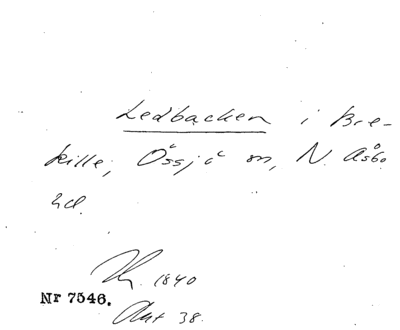 Ledbacken i Bre-
kille, Össjö sn, N. Åsbo
hd.
1840
Nr 7546.
Akt 38.